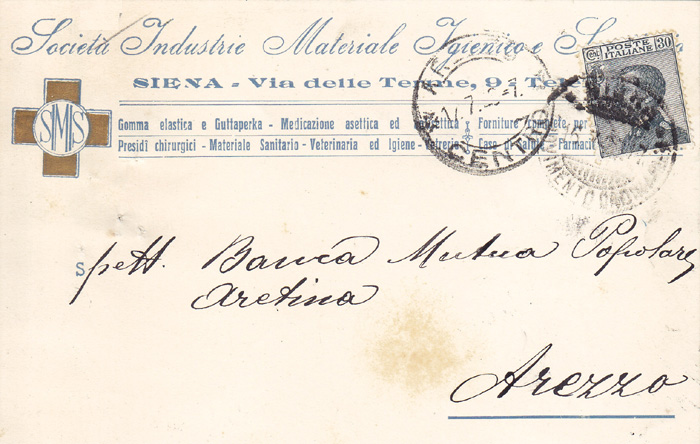 Società Industrie Materiale Igienico e
SIENA - Via delle Terme, 9 -
SMS
Gomma elastica e Guttaperka - Medicazione asettica ed - Forniture complete per
Presidî chirurgici - Materiale Sanitario - Veterinaria ed Igiene - Vetreria - Case di Salute - Farmacie
CENTRO
Cent. POSTE ITALIANE 30
Spett. Banca Mutua Popolare
Aretina
Arezzo